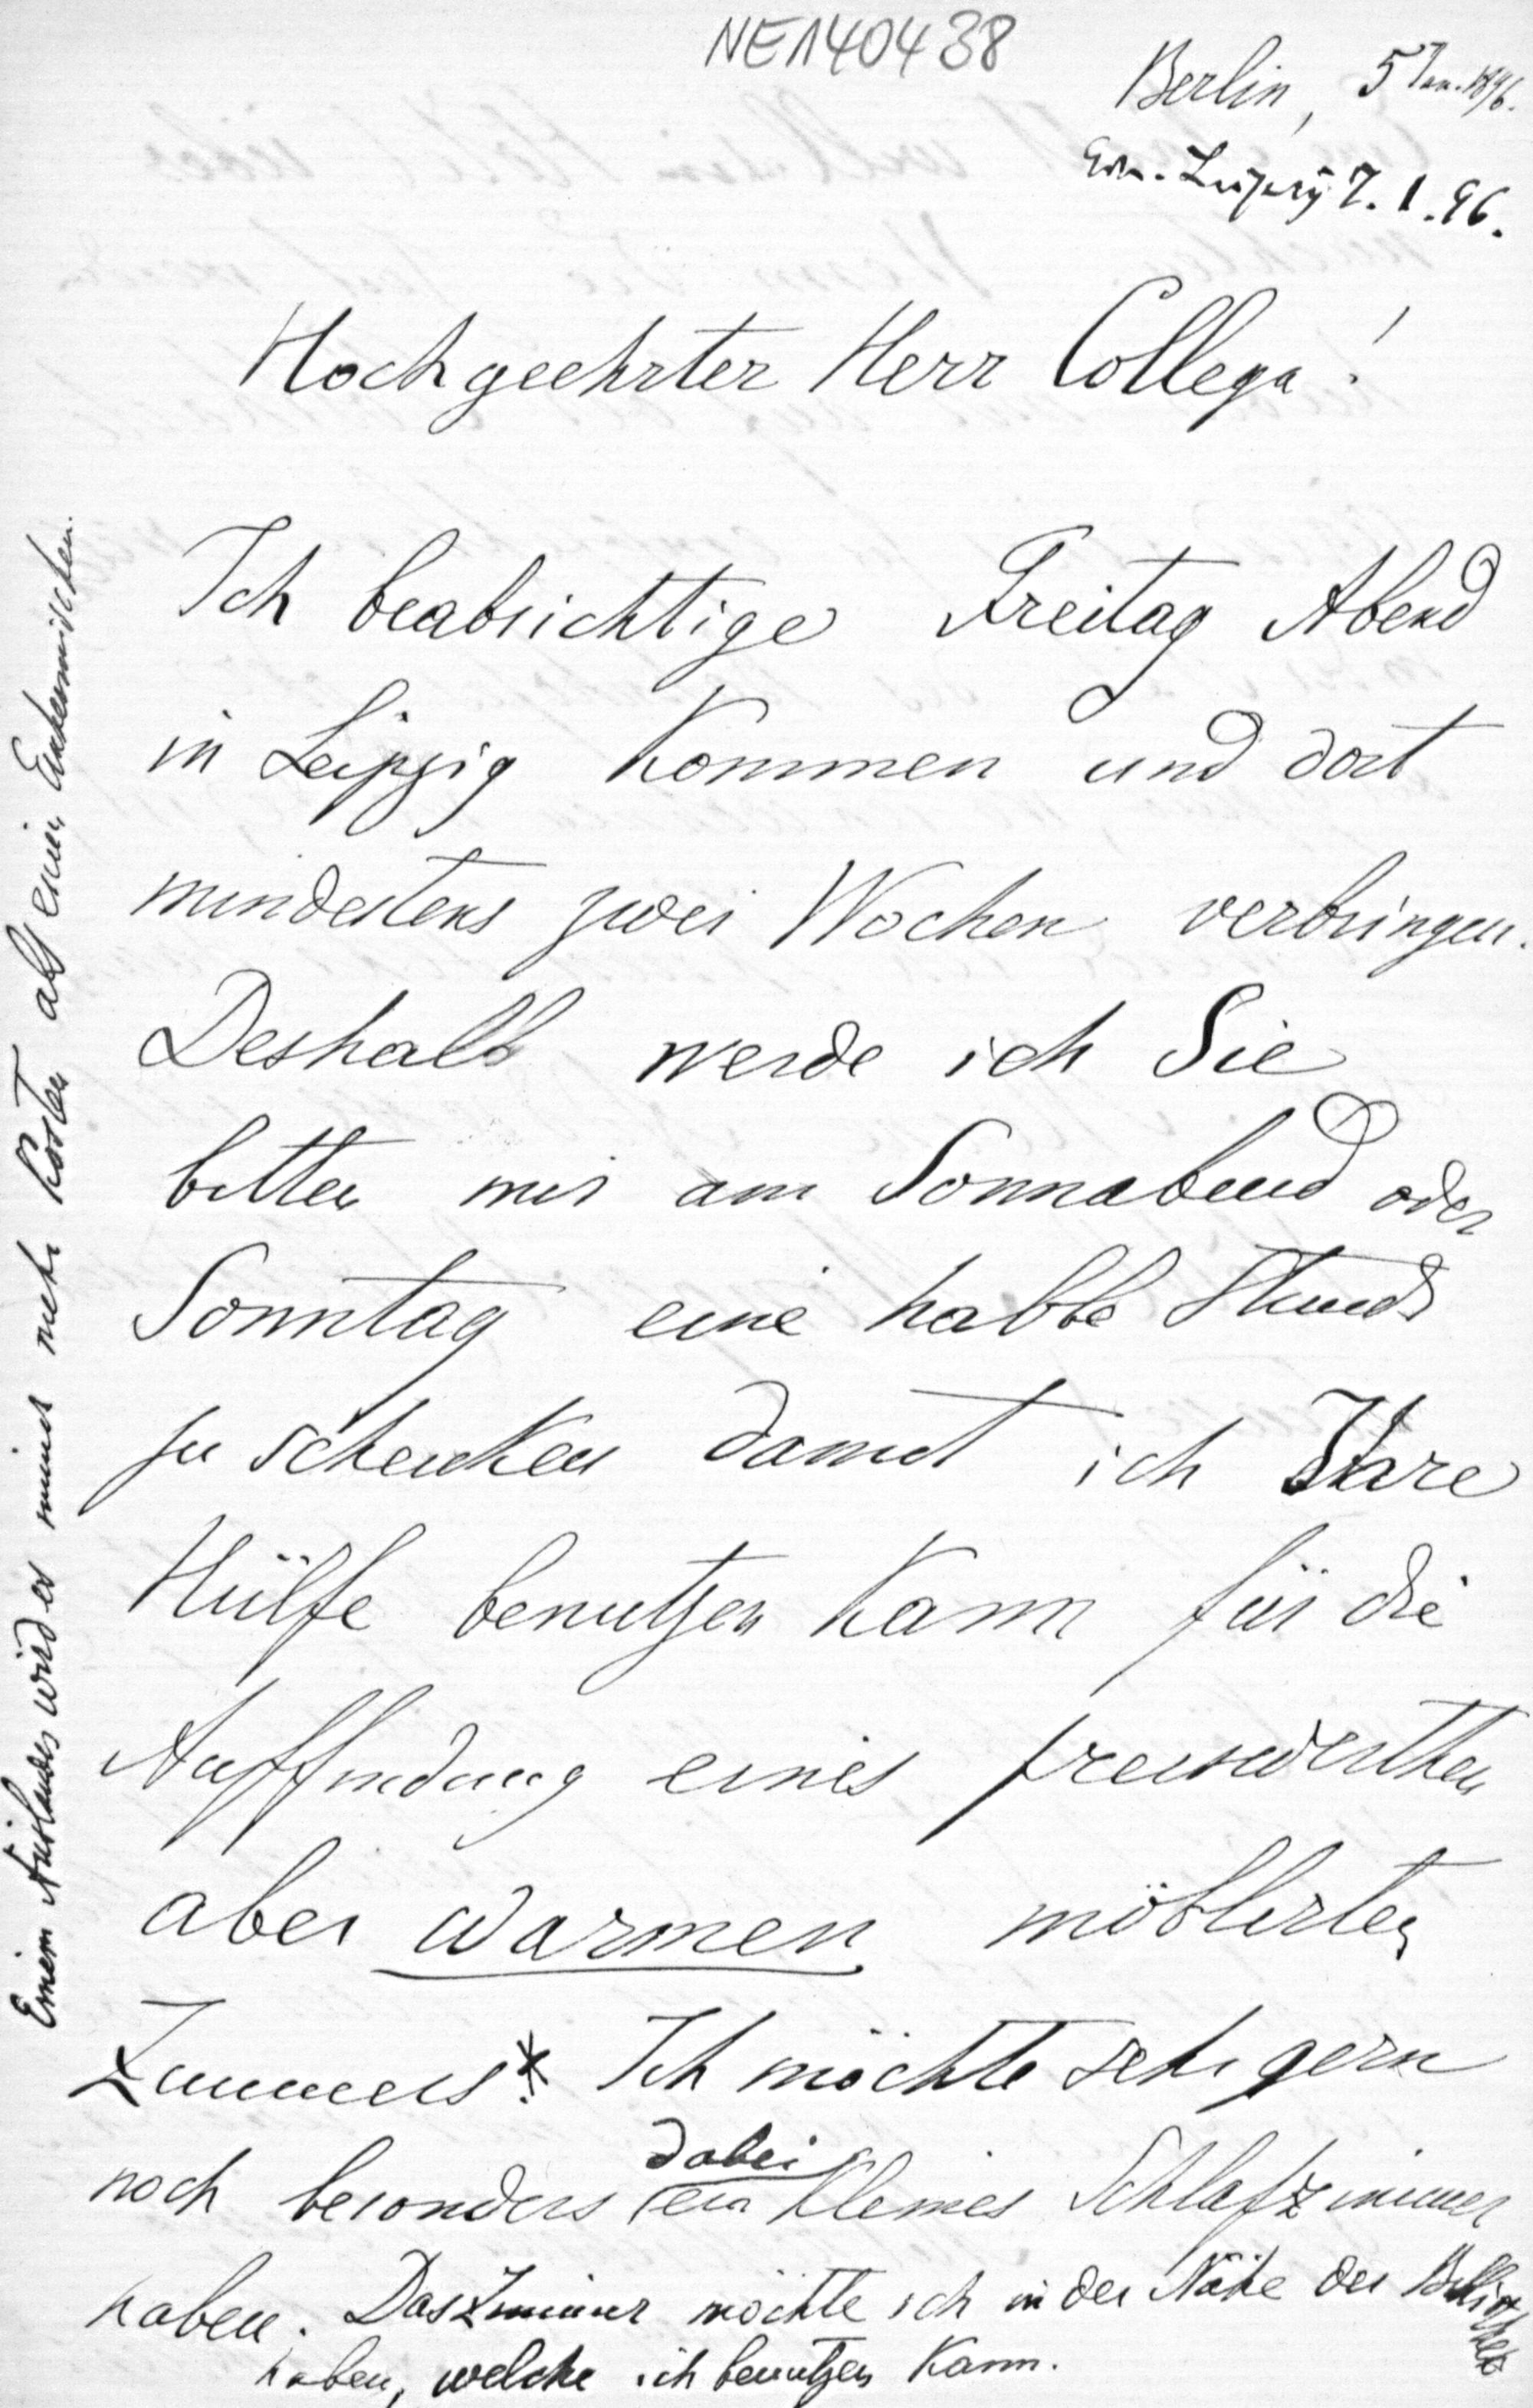 NE140438
Berlin, 5 Jan. 1896.
Leipzig 7.1.96.
Hochgeehrter Herr Collega!
Ich beabsichtige Freitag Abend
in Leipzig kommen und dort
mindestens zwei Wochen verbringen.
Deshalb werde ich Sie
bitten mir am Sonnabend oder
Sonntag eine halbe Stunde
zu schenken damit ich Ihre
Hülfe benutzen kann für die
Auffindung eines preiswerthen
aber warmen möblirten
Zimmers*. Ich möchte sehr gern
dabei
noch besonders ein kleines Schlafzimmer
haben. Das Zimmer möchte ich in der Nähe der Bibliothek
haben, welche ich benutzen kann.
Einem Ausländer wird es immer mehr kosten als einem Einheimischen.